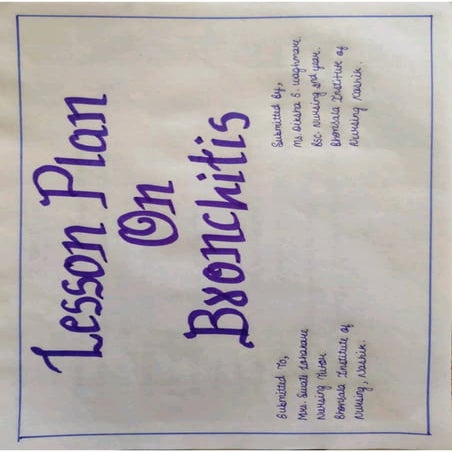 Lesson Plan
On
Bronchitis
Submitted To,
Mrs. Swati
Nursing Tutor
Bhonsala Institute of
Nursing, Nashik.
Submitted by,
Ms. Diksha S. Waghmare.
Bsc. Nursing 2nd year.
Bhonsala Institute of
Nursing Nashik.